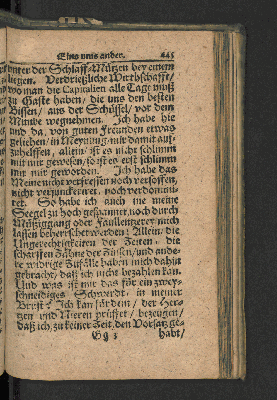 Eins ums ander. 445
unter der Schlaff-Mützen bey einem
liegen. Verdrießliche Wirthschafft/
wo man die Capitalien alle Tage muß
zu Gaste haben/ die uns den besten
Bissen/ aus der Schüssel/ vor dem
Munde wegnehmen. Ich habe hie
und da, von guten Freunden etwas
geliehen/ in Meynung/ mir damit auf-
zuhelffen, allein/ ist es nicht schlimm
mit mir gewesen/ so ist es erst schlimm
mit mir geworden. Ich habe das
Meine nicht verfressen noch versoffen,
nicht verpuncketiret, noch verdominiret.
So habe ich auch nie meine
Seegel zu hoch gespannet, noch durch
Müßiggang oder Faullentzerey mich
lassen beherrschet werden: Allein/ die
Ungerechtigkeiten der Zeiten, die
scharffen Zähne der Zinsen/ und andere
widrige Zufälle haben mich dahin
gebracht/ daß ich nicht bezahlen kan.
Und was ist mir das für ein zwey-
schneidiges Schwerdt, in meiner
Brust? Ich kan fordern/ der Her-
tzen und Nieren prüffet/ bezeugen/
daß ich zu keiner Zeit, den Vorsatz ge-
Gg 3 habt/